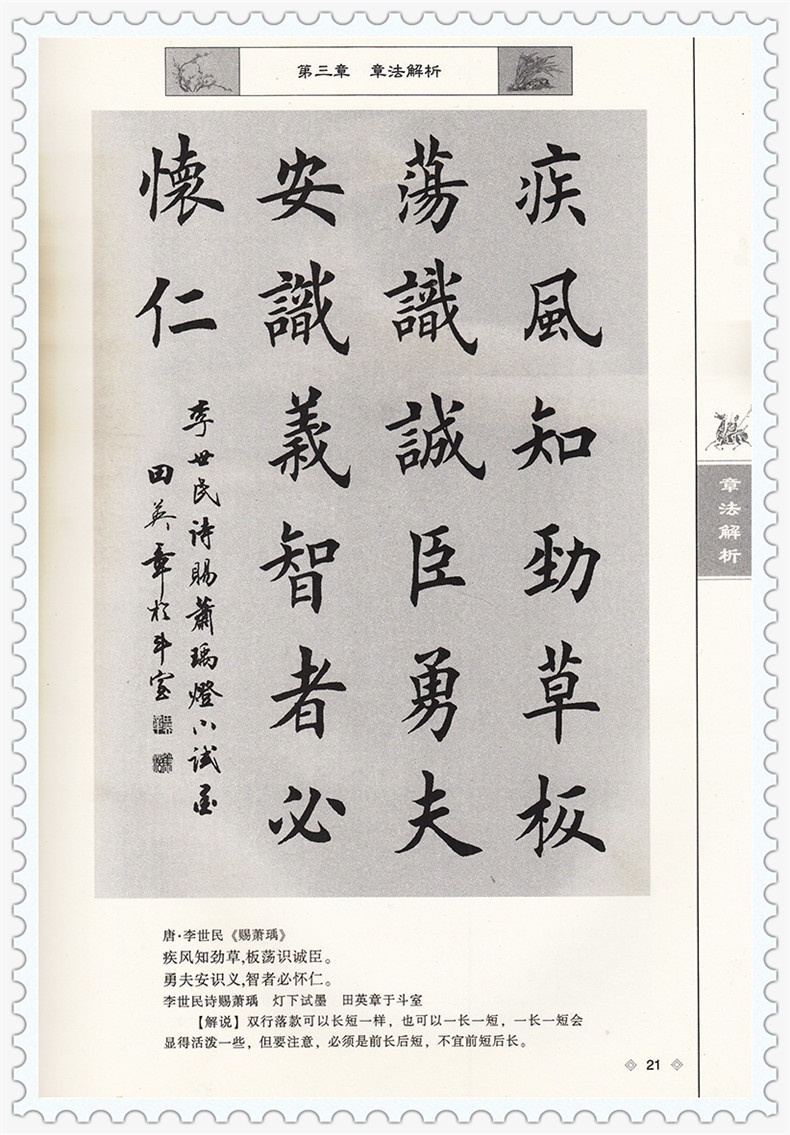 第三章 章法解析
疾風知勁草板
蕩識誠臣勇夫
安識義智者必
懷仁
李世民诗賜蕭瑀燈下试墨
田英章於斗室
章法解析
唐·李世民《赐萧瑀》
疾风知劲草,板荡识诚臣。
勇夫安识义,智者必怀仁。
李世民诗赐萧瑀 灯下试墨 田英章于斗室
【解说】双行落款可以长短一样，也可以一长一短，一长一短会
显得活泼一些，但要注意，必须是前长后短，不宜前短后长。
21